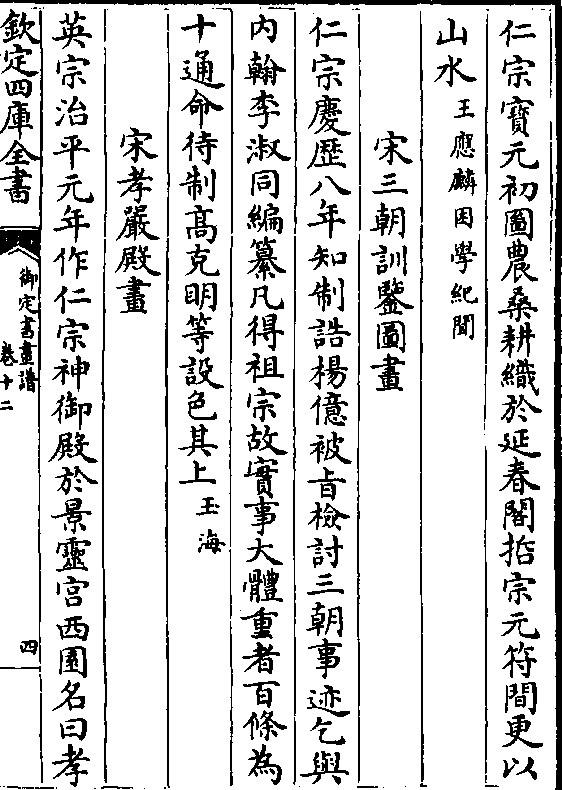 仁宗寶元初圖農桑耕織於延春閣哲宗元符間更以
山水王應麟困學紀聞
宋三朝訓鑒圖畫
仁宗慶歷八年知制誥楊億被旨檢討三朝事迹乞與
内翰李淑同編纂凡得祖宗故實事大體重者百條為
十通命待制高克明等設色其上玉海
宋孝嚴殿畫
英宗治平元年作仁宗神御殿於景靈宫西園名曰孝
欽定四庫全書
御定書畫譜
卷十二
四